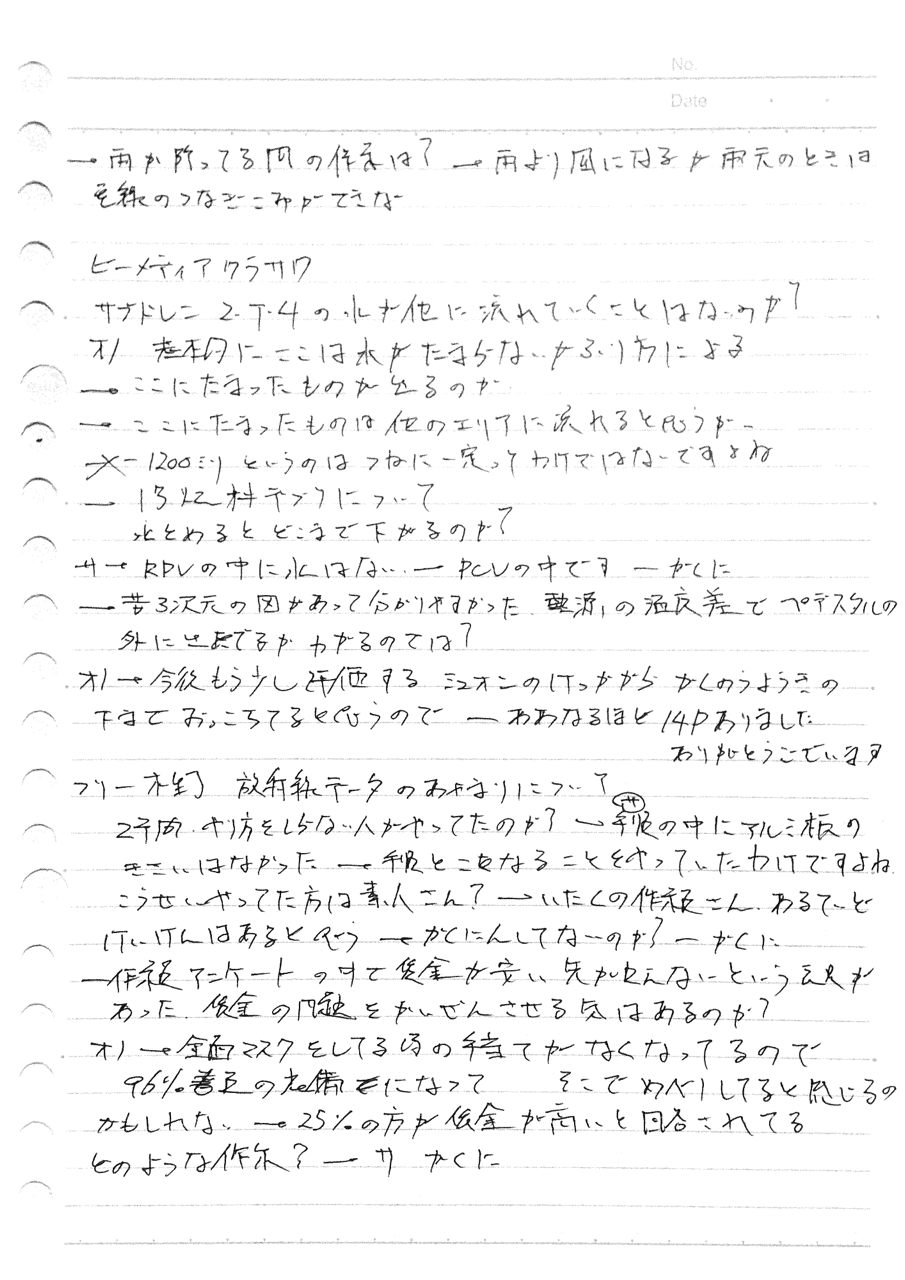 No.
Date
→ 雨が降ってる間の作業は? → 雨より風になるが雨天のときは
電線のつなぎこみができな
ビーメディアクラサワ
サブドレン 2・7・4 の水が他に流れていくことはないのか?
オノ 基本的に ここは水がたまらないがふり方による
→ ここにたまったものが出るのか
→ ここにたまったものは他のエリアに流れると思うが
1200ミリというのは つねに一定ってわけではないですよね
— 1号 燃料デブリについて
水とめると どこまで下がるのか?
サ→ RPVの中に水はない — PCVの中です — かくに
→ 昔3次元の図があって分かりやすかった の温度差で ペデスタルの
外に出てるか わかるのでは?
オノ → 今後もう少し評価する ミュオンのけっかから かくのうようきの
下まで おっこちてると思うので — ああなるほど 14Pありました
ありがとうございます
フリー木野 放射線データのあやまりについて
2年間 やり方をしらない人がやってたのか? → サ 手順の中にアルミ板の
きさいはなかった → 手順とことなることをやっていたわけですよね
こうせいやってた方は素人さん? → いたくの作業さん、あるていど
けいけんはあると思う → かくにんしてないのか? — かくに
— 作業アンケートの中で 賃金が安い 先が見えないという意見が
あった 賃金の問題をかいぜんさせる気はあるのか?
オノ → 全面マスクをしてる時の手当てがなくなってるので
96% の になって そこでめべりしてると感じるの
かもしれない → 25%の方が賃金が高いと回答されてる
どのような作業? — サ かくに